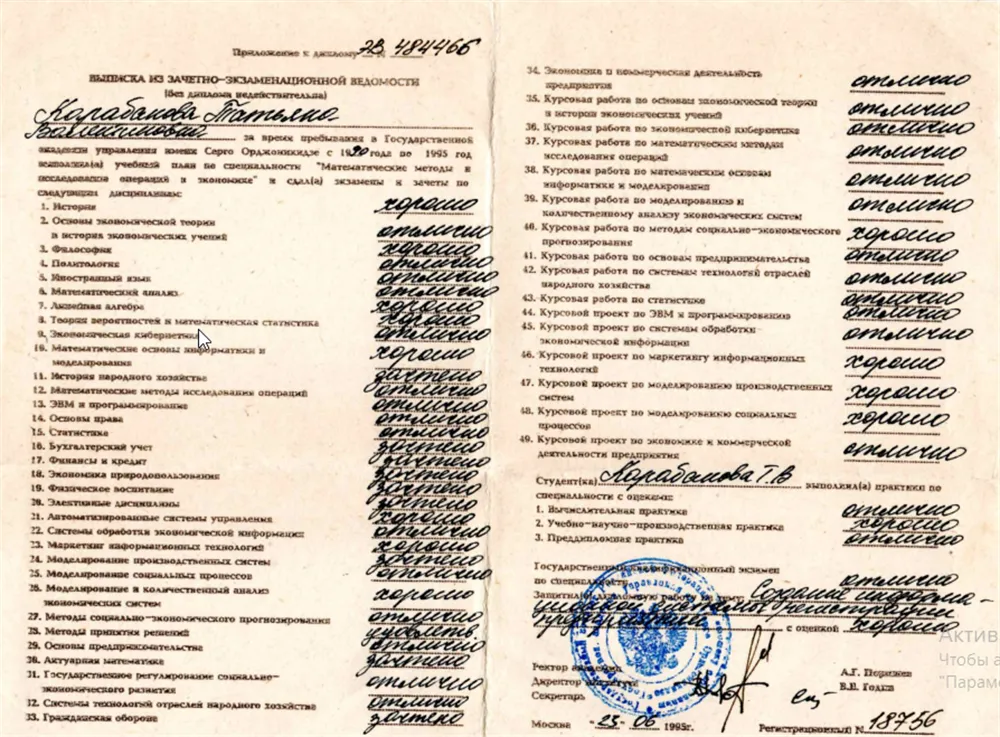 Приложение к диплому ЭВ № 484466
ВЫПИСКА ИЗ ЗАЧЕТНО-ЭКЗАМЕНАЦИОННОЙ ВЕДОМОСТИ
(без диплома недействительна)
Карабанова Татьяна
за время пребывания в Государственной
академии управления имени Серго Орджоникидзе с 1990 года по 1995 год
выполнил(а) учебный план по специальности "Математические методы и
исследование операций в экономике" и сдал(а) экзамены и зачеты по
следующим дисциплинам:
1. История хорошо
2. Основы экономической теории
и история экономических учений отлично
3. Философия хорошо
4. Политология отлично
5. Иностранный язык отлично
6. Математический анализ отлично
7. Линейная алгебра хорошо
8. Теория вероятностей и математическая статистика хорошо
9. Экономическая кибернетика отлично
10. Математические основы информатики и
моделирования хорошо
11. История народного хозяйства зачтено
12. Математические методы исследования операций отлично
13. ЭВМ и программирование отлично
14. Основы права отлично
15. Статистика отлично
16. Бухгалтерский учет зачтено
17. Финансы и кредит зачтено
18. Экономика природопользования зачтено
19. Физическое воспитание зачтено
20. Элективные дисциплины зачтено
21. Автоматизированные системы управления хорошо
22. Системы обработки экономической информации отлично
23. Маркетинг информационных технологий хорошо
24. Моделирование производственных систем зачтено
25. Моделирование социальных процессов отлично
26. Моделирование и количественный анализ
экономических систем хорошо
27. Методы социально-экономического прогнозирования отлично
28. Методы принятия решений удовлетв.
29. Основы предпринимательства отлично
30. Актуарная математика зачтено
31. Государственное регулирование социально-
экономического развития отлично
32. Системы технологий отраслей народного хозяйства отлично
33. Гражданская оборона зачтено
34. Экономика и коммерческая деятельность
предприятия отлично
35. Курсовая работа по основам экономической теории
и истории экономических учений отлично
36. Курсовая работа по экономической кибернетике отлично
37. Курсовая работа по математическим методам
исследования операций отлично
38. Курсовая работа по математическим основам
информатики и моделирования отлично
39. Курсовая работа по моделированию и
количественному анализу экономических систем отлично
40. Курсовая работа по методам социально-экономического
прогнозирования хорошо
41. Курсовая работа по основам предпринимательства отлично
42. Курсовая работа по системам технологий отраслей
народного хозяйства отлично
43. Курсовая работа по статистике отлично
44. Курсовой проект по ЭВМ и программированию отлично
45. Курсовой проект по системам обработки
экономической информации отлично
46. Курсовой проект по маркетингу информационных
технологий хорошо
47. Курсовой проект по моделированию производственных
систем хорошо
48. Курсовой проект по моделированию социальных
процессов хорошо
49. Курсовой проект по экономике и коммерческой
деятельности предприятия отлично
Студент(ка) Карабанова Т.В выполнил(а) практики по
специальности с оценками:
1. Вычислительная практика отлично
2. Учебно-научно-производственная практика хорошо
3. Преддипломная практика отлично
Государственный квалификационный экзамен
по специальности отлично
Защитил(а) дипломную работу на тему: Создание информа-
ционной системы регистрации
предприятий с оценкой хорошо
Ректор академии А.Г. Поршнев
Директор института В.В. Годин
Секретарь
Москва "23" 06 1995г. Регистрационный N 18756
Актив
Чтобы а
"Парам